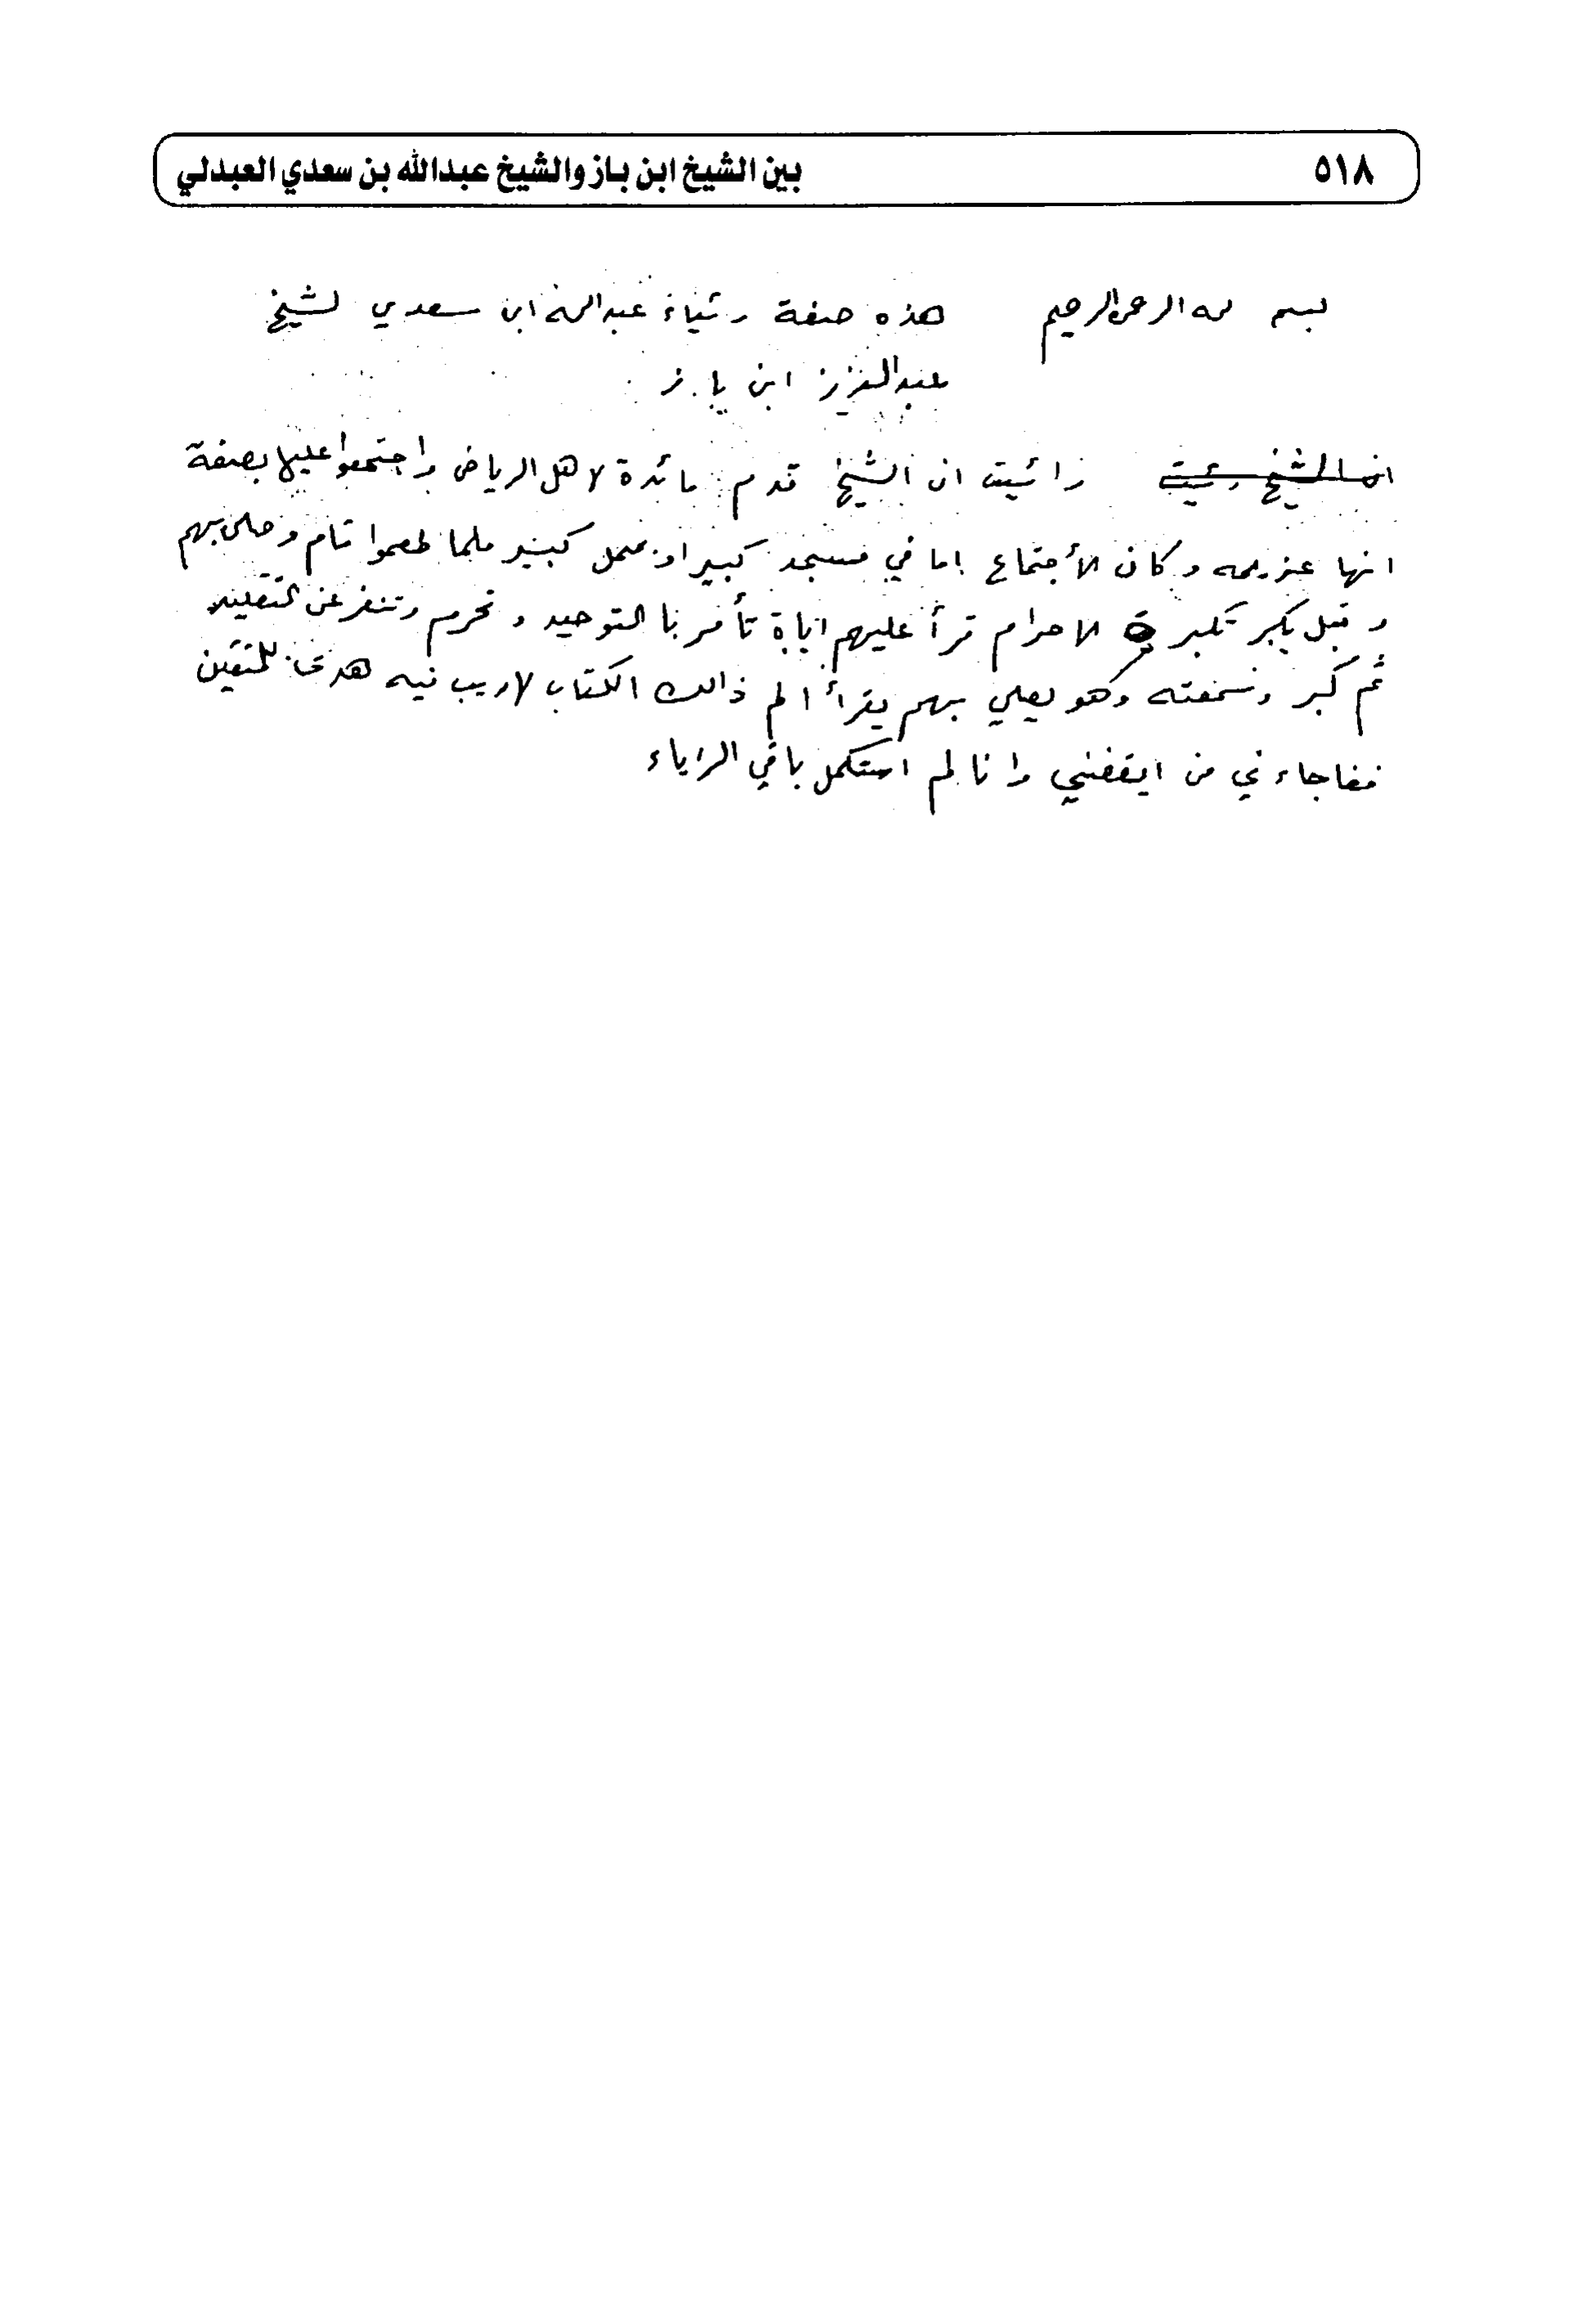 ٥١٨ بين الشيخ ابن باز والشيخ عبدالله بن سعدي العبدلي
بسم الله الرحمن الرحيم هذه صفة رئياء عبدالله ابن سعدي لشيخ
عبدالعزيز ابن باز
ان الشيخ رئيت رائيت ان الشيخ قدم مائدة لاهل الرياض واجتمعوا عليها بصفة
انها عزيمه وكان الأجتماع اما في مسجد كبير او محل كبير فلما طعموا قام وصلى بهم
وقبل يكبر تكبرة الاحرام قرأ عليهم اياة تأمر با التوحيد و تحرم وتنفر عن التقليد
ثم كبر وسمعته وهو يصلي بهم يقرأ الم ذالك الكتاب لاريب فيه هدى للمتقين
ففاجاءني من ايقضني وانا لم استكمل باقي الراياء